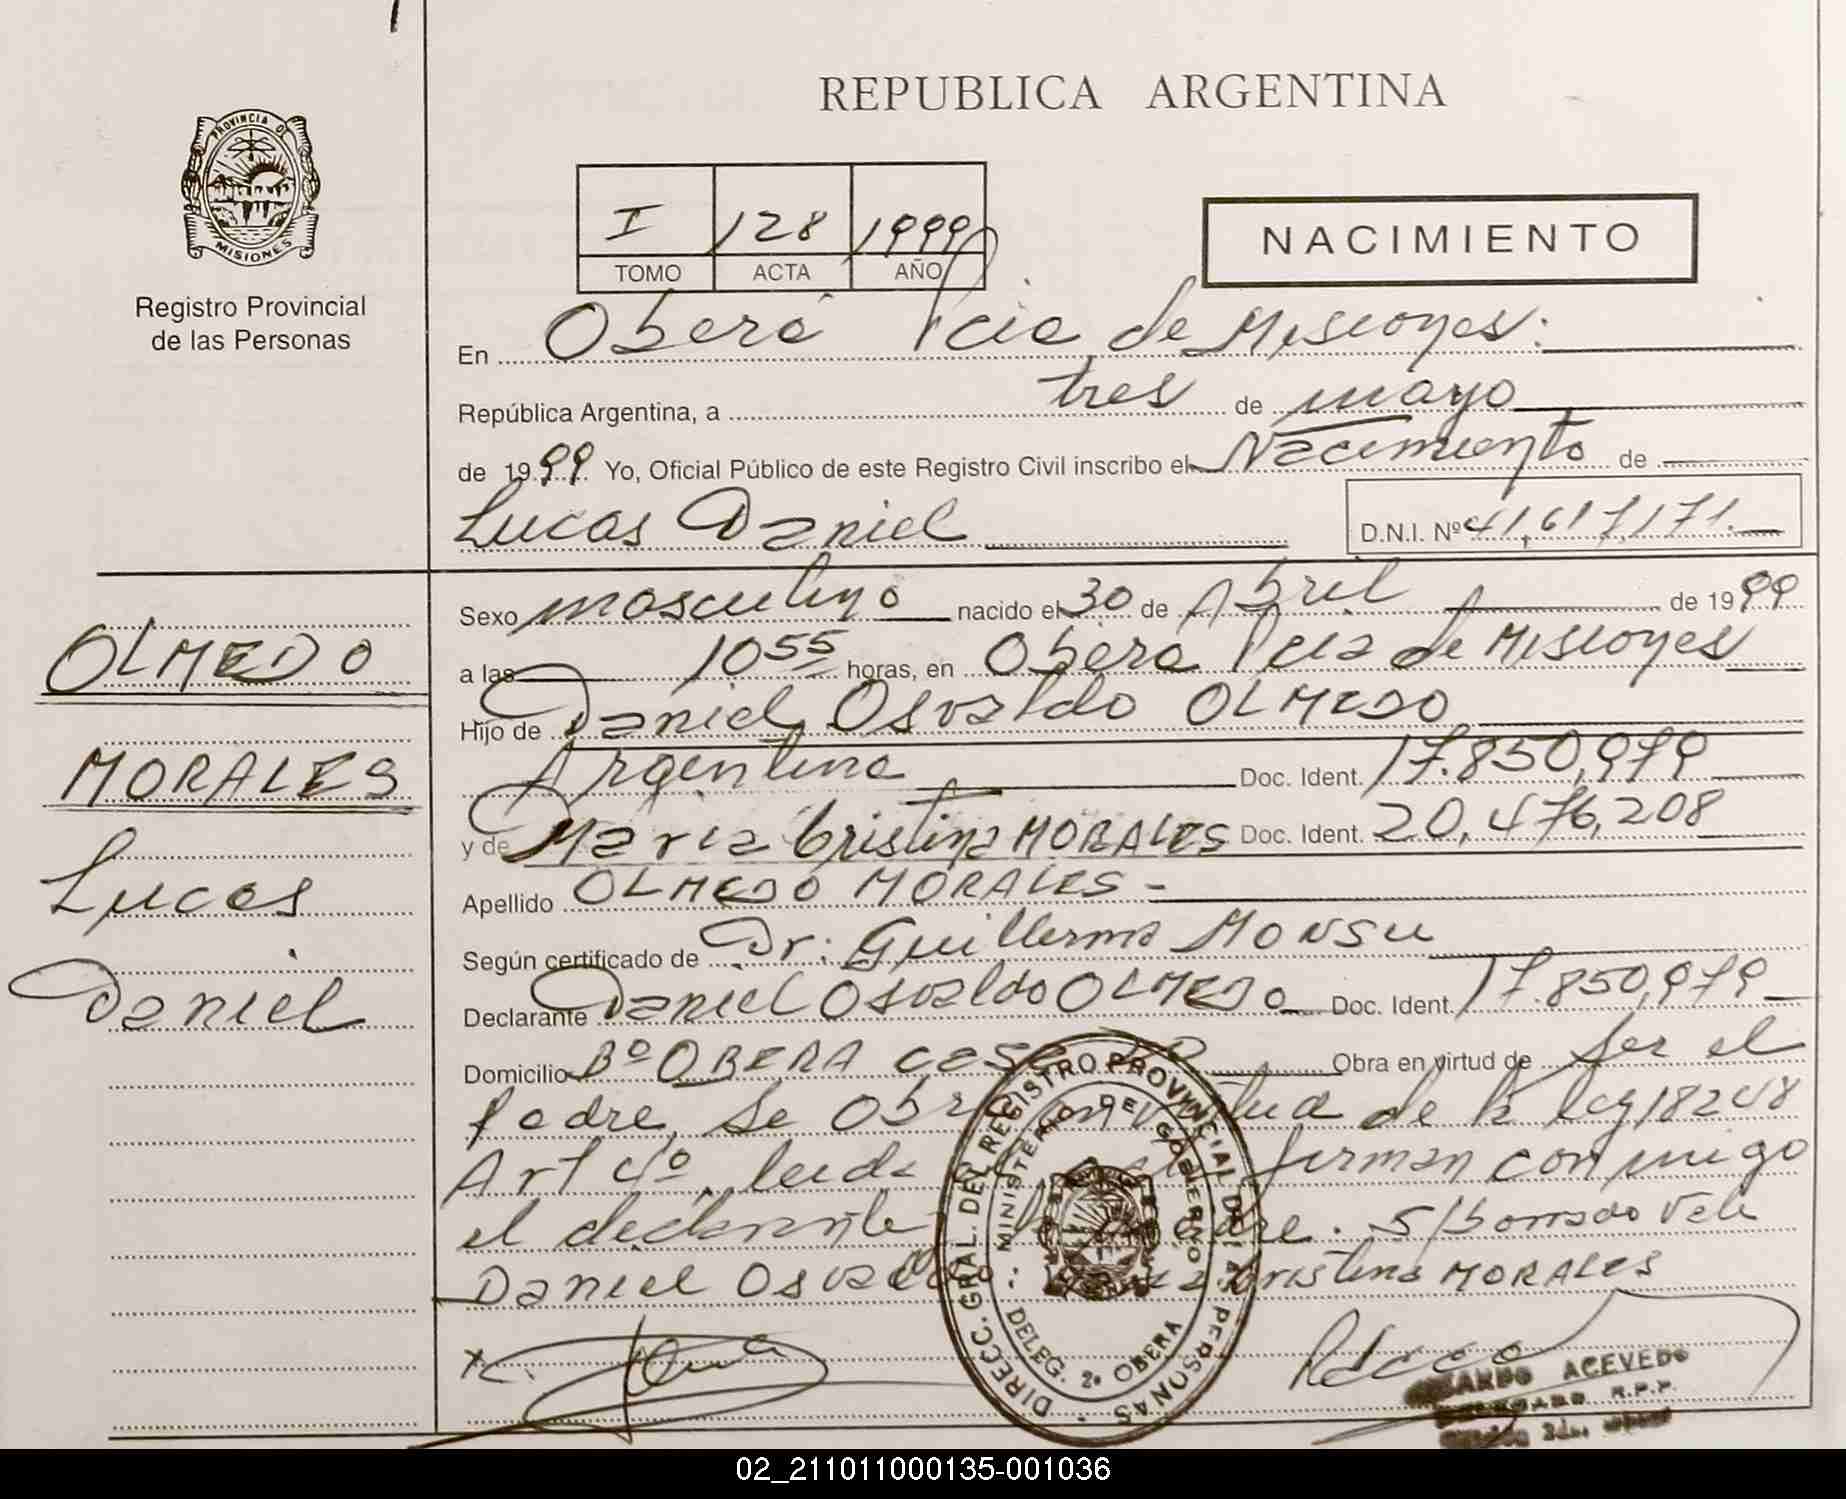 REPUBLICA ARGENTINA
PROVINCIA DE
MISIONES
Registro Provincial
de las Personas
I 128 1999
TOMO ACTA AÑO
NACIMIENTO
En Oberá Pcia de Misiones:
República Argentina, a tres de mayo
de 1999 Yo, Oficial Público de este Registro Civil inscribo el Nacimiento de
Lucas Daniel D.N.I. Nº 41,617,171.
Sexo masculino nacido el 30 de Abril de 1999
a las 10 55 horas, en Oberá Pcia de Misiones
Hijo de Daniel Osvaldo OLMEDO
Argentina Doc. Ident. 17.850,979
y de Maria Cristina MORALES Doc. Ident. 20,476,208
Apellido OLMEDO MORALES -
Según certificado de Dr: Guillermo MONSU
Declarante Daniel Osvaldo OLMEDO Doc. Ident. 17.850,979
Domicilio Bº OBERA Obra en virtud de ser el
padre, se virtud de la ley 18248
Art 4º leida firman conmigo
el declarante . S/borrado Vale
Daniel Cristina MORALES
OLMEDO
MORALES
Lucas
Daniel
DIRECC. GRAL. DEL REGISTRO PROVINCIAL DE LAS PERSONAS
MINISTERIO DE GOBIERNO
DELEG. 2ª OBERÁ
ACEVEDO
R.P.P.
02_211011000135-001036